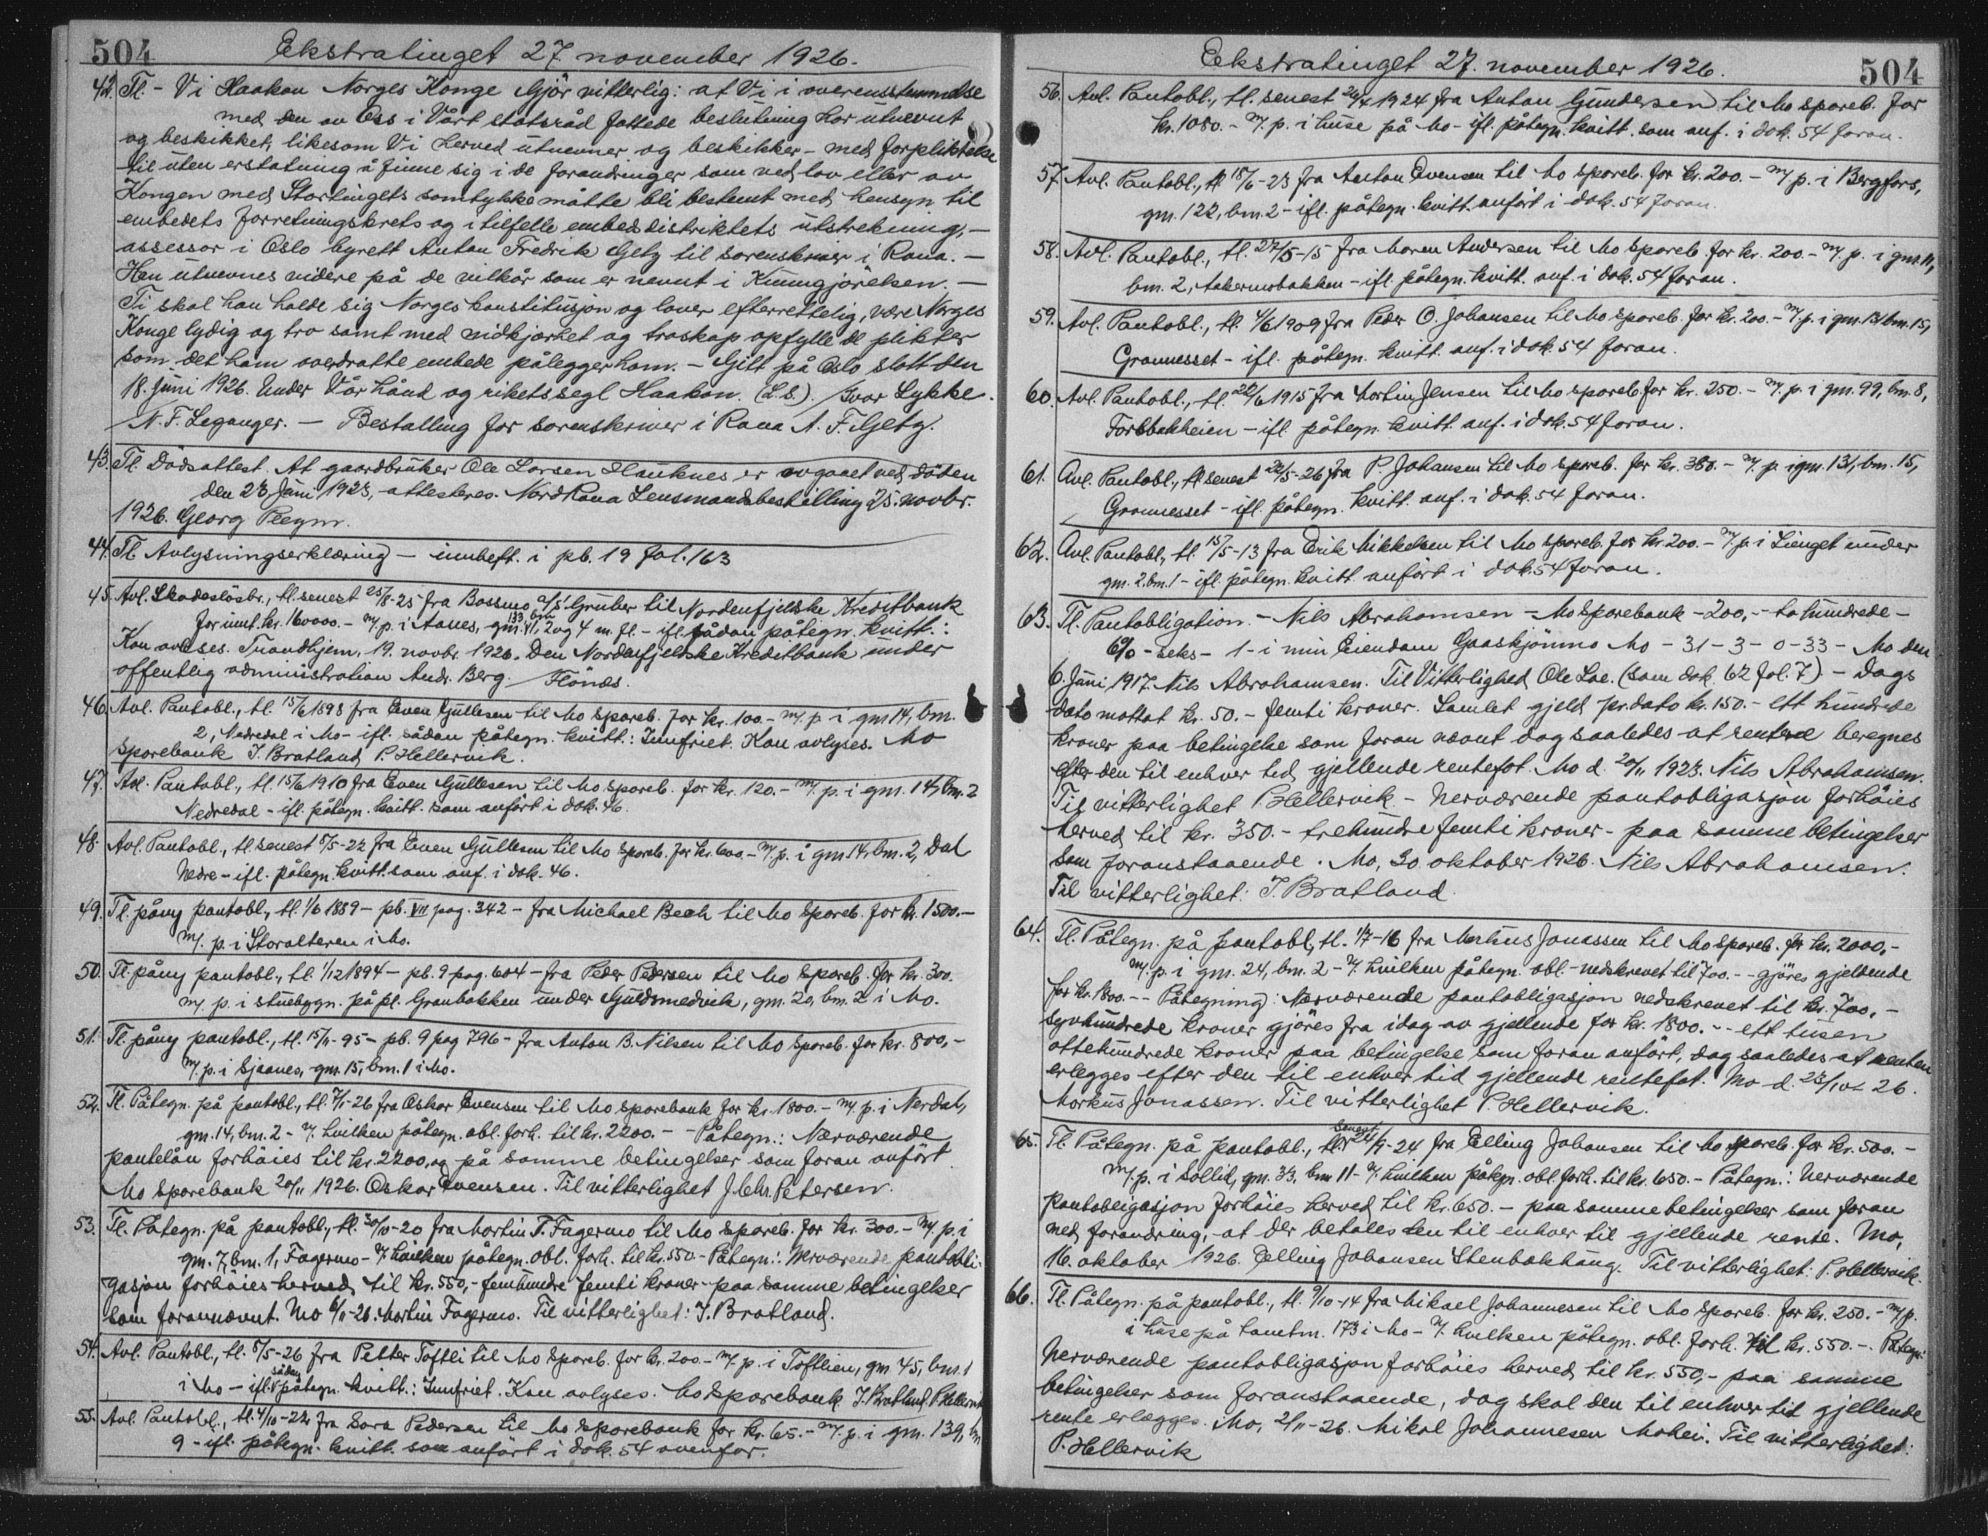 504
Ekstratinget 27 november 1926.
42. Tl. - Vi Haakon Norges Konge Gjör vitterlig: at Vi i overensstemmelse
med den av Oss i Vårt statsråd fattede beslutning har utnevnt
og beskikket, likesom Vi herved utnevner og beskikker - med forpliktelse
til uten erstatning å finne sig i de forandringer som ved lov eller av
Kongen med Stortingets samtykke måtte bli bestemt med hensyn til
embedets forretningskrets og i tilfelle embedsdistriktets utstrekning, -
assessor i Oslo byrett Anton Fredrik Getz til sorenskriver i Rana. -
Han utnevnes videre på de vilkår som er nevnt i Kunngjörelsen. -
Ti skal han holde sig Norges konstitusjon og lover efterrettelig, være Norges
Konge lydig og tro samt med nidkjærhet og troskap opfylle de plikter
som det ham overdratte embede pålegger ham. - Gitt på Oslo slott den
18. juni 1926. Under Vår hånd og rikets segl Haakon. (L.S.). Ivar Lykke.
N. F. Leganger. - Bestalling for sorenskriver i Rana A. F. Getz.
43. Tl. Dödsattest. At gaardbruker Ole Larsen Hauknes er avgaaet ved döden
den 23 juni 1923, attesteres. Nord Rana Lensmandsbestilling 25. novbr.
1926. Georg
44. Tl. Avlysningserklæring - innheft. i pb. 19 fol. 163
45. Avl. Skadeslösbr., tl. senest 25/8-25 fra Bossmo a/s Gruber til Nordenfjelske Kreditbank
for inntil kr. 160000.- m/ p. i Aanes, gm. 133, bm. 1, 2 og 4 m. fl. - ifl. sådan påtegn. kvitt.:
Kan avlæses. Trondhjem, 19. novbr. 1926. Den Nordenfjelske Kreditbank under
offentlig administration Andr. Berg. Flönæs.
46. Avl. Pantobl., tl. 15/6 1898 fra Even Gullesen til Mo Spareb. for kr. 100.- m/ p. i gm. 14, bm.
2, Nedredal i Mo - ifl. sådan påtegn. kvitt.: Innfriet. Kan avlyses. Mo
Sparebank J. Bratland P. Hellervik.
47. Avl. Pantobl., tl. 15/6 1910 fra Even Gullesen til Mo Spareb. for kr. 120.- m/ p. i gm. 14, bm. 2
Nedredal - ifl. påtegn. kvitt. som anført i dok. 46.
48. Avl. Pantobl., tl. senest 5/5-22 fra Even Gullesen til Mo Spareb. for kr. 600.- m/ p. i gm. 14, bm. 2, Dal
Nedre - ifl. påtegn. kvitt. som anf. i dok. 46.
49. Tl. påny pantobl., tl. 1/6 1889 - pb. VII pag. 342 - fra Michael Bech til Mo Spareb. for kr. 1500.-
m/. p. i Storalteren i Mo.
50. Tl. påny pantobl., tl. 1/12 1894 - pb. 9 pag. 604 - fra Peder Pedersen til Mo Spareb. for kr. 300.
m/ p. i stuebygn. på pl. Granbakken under Guldsmedvik, gm. 20, bm. 2 i Mo.
51. Tl. påny pantobl., tl. 15/11-95 - pb. 9 pag 796 - fra Anton B. Nilsen til Mo Spareb. for kr. 800,-
m/. p. i Sjaanes, gm. 15, bm. 1 i Mo.
52. Tl. Påtegn. på pantobl., tl. 7/1-26 fra Oskar Evensen til Mo Sparebank for kr. 1800.- m/ p. i Nerdal,
gm. 14, bm. 2 - v/ hvilken påtegn. obl. forh. til kr. 2200. - - Påtegn.: Nærværende
pantelån forhöies til kr. 2200,00 på samme betingelser som foran anført
Mo Sparebank 20/11 1926. Oskar Evensen. Til vitterlighet J. Chr. Petersen.
53. Tl. Påtegn. på pantobl., tl. 30/10-20 fra Martin T. Fagermo til Mo Spareb. for kr. 300.- m/ p. i
gm. 7, bm. 1, Fagermo - v/ hvilken påtegn. obl. forh. til kr. 550.- Påtegn.: Nerværende pantobli-
gasjon forhöies herved til kr. 550,- femhundre femti kroner - paa samme betingelser
som forannævnt. Mo 6/11-26. Martin Fagermo. Til vitterlighet: J. Bratland.
54. Avl. Pantobl., tl. 5/5-26 fra Petter Toftli til Mo Spareb. for kr. 200.- m/ p. i Toftlien, gm. 45, bm. 1
i Mo - ifl. sådan påtegn. kvitt.: Innfriet. Kan avlyses. Mo Sparebank J. Bratland P. Hellervik
55. Avl. Pantobl., tl. 4/10-22 fra Sara Pedersen til Mo Sparebank for kr. 65.- m/ p. i gm. 139, bm
9 - ifl. påtegn. kvitt. som anført i dok. 54 ovenfor.
504
Ekstratinget 27. november 1926.
56. Avl. Pantobl., tl. senest 26/4 1924 fra Anton Gundersen til Mo Spareb. for
kr. 1080.- m/. p. i huse på Mo - ifl. påtegn. kvitt. som anf. i dok. 54 foran.
57. Avl. Pantobl., tl. 15/6-23 fra Anton Evensen til Mo Spareb. for kr. 200.- m/ p. i Bergfors,
gm. 122, bm. 2 - ifl. påtegn. kvitt. anført i dok. 54 foran.
58. Avl. Pantobl., tl. 27/5-15 fra Maren Andersen til Mo Spareb. for kr. 200.- m/. p. i gm. 11,
bm. 2, Aakermobakken - ifl. påtegn. kvitt. anf. i dok. 54 foran.
59. Avl. Pantobl., tl. 4/6 1909 fra Peder O. Johansen til Mo Spareb. for kr. 200.- m/. p. i gm. 131 bm. 15,
Grannesset - ifl. påtegn. kvitt. anf. i dok. 54 foran.
60. Avl. Pantobl., tl. 26/6 1915 fra Martin Jensen til Mo Spareb. for kr. 250.- m/. p. i gm. 99, bm. 8,
Forsbakheien - ifl. påtegn. kvitt. anf. i dok. 54 foran.
61. Avl. Pantobl., tl. senest 26/5-26 fra P. Johansen til Mo Spareb. for kr. 380.- m/. p. i gm. 131, bm. 15,
Grannesset - ifl. påtegn. kvitt. anf. i dok. 54 foran.
62. Avl. Pantobl., tl. 15/5-13 fra Erik Mikkelsen til Mo Spareb. for kr. 200.- m/. p. i Lienget under
gm. 2, bm. 1 - ifl. påtegn. kvitt. anført i dok. 54 foran.
63. Tl. Pantobligation. - Nils Abrahamsen - Mo Sparebank - 200,- tohundrede -
6% - seks - 1 - i min Eiendom Gaaskjönmo Mo - 31-3-0-33 - Mo den
6. Juni 1917. Nils Abrahamsen. Til Vitterlighed Ole Loe. (som dok. 62 fol. 7) - Dags
dato mottat kr. 50.- femti kroner. Samlet gjeld pr. dato kr. 150.- ett hundrede
kroner paa betingelse som foran nevnt dog saaledes at renterne beregnes
efter den til enhver tid gjellende rentefot. Mo d. 20/11 1923. Nils Abrahamsen.
Til vitterlighet P. Hellervik - Nerværende pantobligasjon forhöies
herved til kr. 350.- trehundre femti kroner - paa samme betingelser
som foranstaaende. Mo, 30 oktober 1926. Nils Abrahamsen.
Til vitterlighet: J. Bratland
64. Tl. Påtegn. på pantobl., tl. 1/7-16 fra Markus Jonassen til Mo Spareb. for kr. 2000,-
m/. p. i gm. 24, bm. 2 - v/. hvilken påtegn. obl. - nedskrevet til 700.- - gjöres gjeldende
for kr. 1800.- - Påtegning: Nærværende pantobligasjon nedskrevet til kr. 700.-
syvhundrede kroner gjöres fra idag av gjellende for kr. 1800.- - ett tusen
ottehundrede kroner paa betingelse som foran anført, dog saaledes at renten
erlegges efter den til enhver tid gjellende rentefot. Mo d. 23/10 26.
Markus Jonassen. Til vitterlighet P. Hellervik.
65. Tl. Påtegn. på pantobl., tl. senest 24/9-24 fra Elling Johansen til Mo Spareb. for kr. 500.-
m/. p. i Sollid, gm. 33, bm 11 - v/ hvilken påtegn. obl. forh. til kr. 650.- Påtegn.: Nerværende
pantobligasjon forhöies herved til kr. 650.- paa samme betingelser som foran
med forandring, at der betales den til enhver til gjellende rente. Mo,
16. oktober 1926. Elling Johansen Stenbakhaug. Til vitterlighet: P. Hellervik.
66. Tl. Påtegn. på pantobl., tl. 9/10-14 fra Mikael Johannesen til Mo Spareb. for kr. 250.- m/ p.
i huse på tomtm. 173 i Mo - v/. hvilken påtegn. obl. forh. til kr. 550.-. Påtegn:
Nerværende pantobligasjon forhöies herved til kr. 550,- paa samme
betingelser som foranstaaende, dog skal den til enhver tid gjellende
rente erlægges. Mo, 2/11-26. Mikal Johannesen Mohei. Til vitterlighet:
P. Hellervik